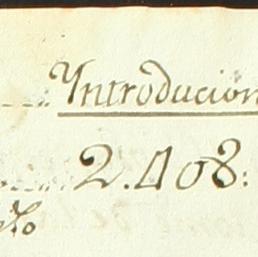 Yntroducion
2.408: